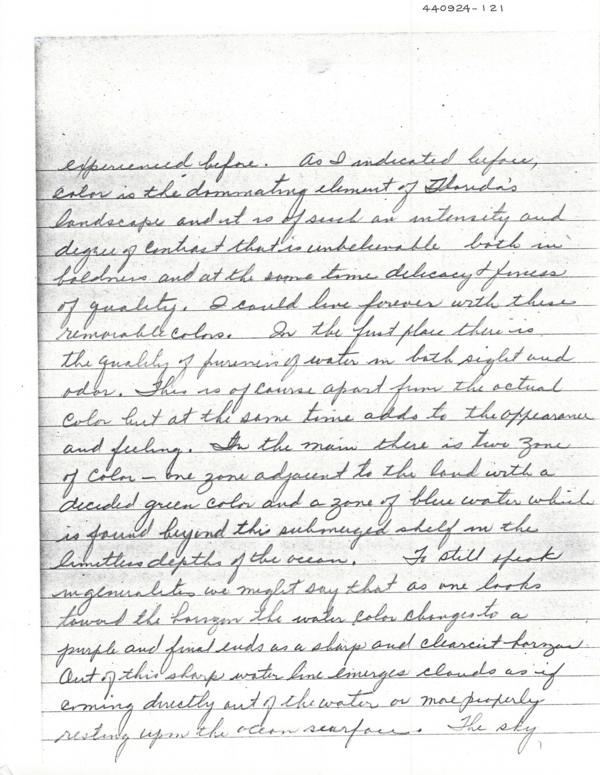 440924-121
experienced before. As I indicated before,
color is the dommating element of Florida's
landscape and it is of such an intensity and
degree of contrast that is unbelievable both in
boldness and at the same time delicacy & finess
of quality. I could live forever with these
remarable colors. In the first place there is
the quality of pureness of water in both sight and
odor. This is of course apart from the actual
color but at the same time adds to the appearance
and feeling. In the main there is two zone
of color - one zone adjacent to the land with a
decided green color and a zone of blue water which
is found beyond this submerged shelf in the
limitless depths of the ocean. To still speak
in generalites we might say that as one looks
toward the horizon the water color changes to a
purple and final ends as a sharp and clearcut horizon
Out of this sharp water line emerges clouds as if
coming directly out of the water or more properly
resting upon the ocean searface. The sky